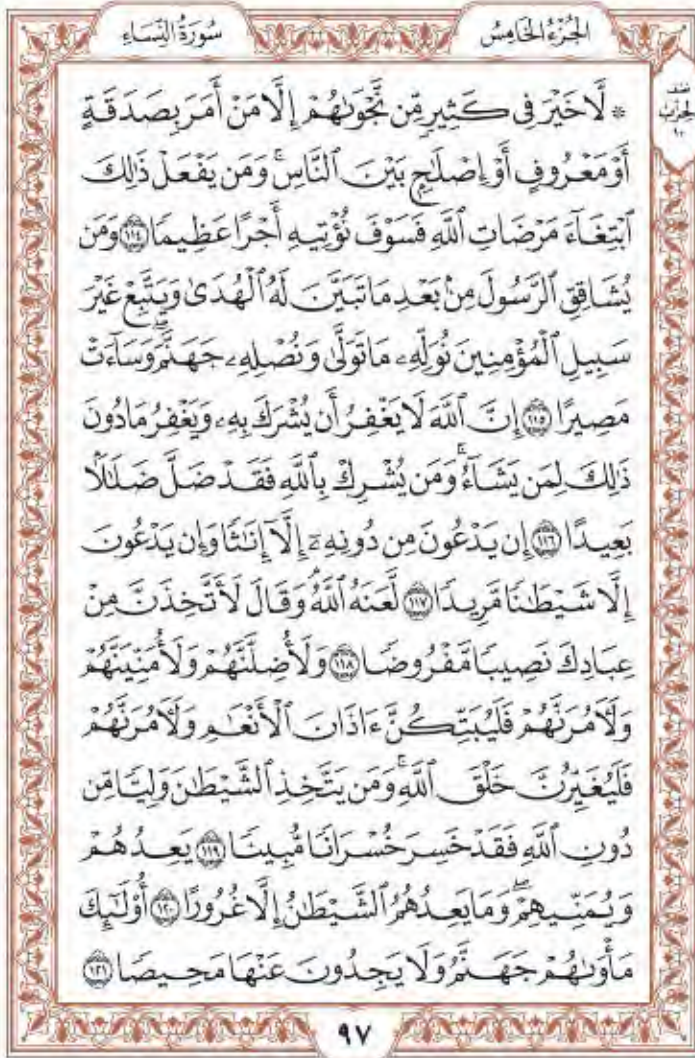 الجُزْءُ الخَامِسُ
سُورَةُ النِّسَاءِ
نصف
الحزب
١٠
۞ لَّا خَيْرَ فِى كَثِيرٍ مِّن نَّجْوَىٰهُمْ إِلَّا مَنْ أَمَرَ بِصَدَقَةٍ
أَوْ مَعْرُوفٍ أَوْ إِصْلَٰحٍۭ بَيْنَ ٱلنَّاسِۚ وَمَن يَفْعَلْ ذَٰلِكَ
ٱبْتِغَآءَ مَرْضَاتِ ٱللَّهِ فَسَوْفَ نُؤْتِيهِ أَجْرًا عَظِيمًا ١١٤ وَمَن
يُشَاقِقِ ٱلرَّسُولَ مِنۢ بَعْدِ مَا تَبَيَّنَ لَهُ ٱلْهُدَىٰ وَيَتَّبِعْ غَيْرَ
سَبِيلِ ٱلْمُؤْمِنِينَ نُوَلِّهِۦ مَا تَوَلَّىٰ وَنُصْلِهِۦ جَهَنَّمَۖ وَسَآءَتْ
مَصِيرًا ١١٥ إِنَّ ٱللَّهَ لَا يَغْفِرُ أَن يُشْرَكَ بِهِۦ وَيَغْفِرُ مَا دُونَ
ذَٰلِكَ لِمَن يَشَآءُۚ وَمَن يُشْرِكْ بِٱللَّهِ فَقَدْ ضَلَّ ضَلَٰلًۢا
بَعِيدًا ١١٦ إِن يَدْعُونَ مِن دُونِهِۦٓ إِلَّآ إِنَٰثًا وَإِن يَدْعُونَ
إِلَّا شَيْطَٰنًا مَّرِيدًا ١١٧ لَّعَنَهُ ٱللَّهُۘ وَقَالَ لَأَتَّخِذَنَّ مِنْ
عِبَادِكَ نَصِيبًا مَّفْرُوضًا ١١٨ وَلَأُضِلَّنَّهُمْ وَلَأُمَنِّيَنَّهُمْ
وَلَءَامُرَنَّهُمْ فَلَيُبَتِّكُنَّ ءَاذَانَ ٱلْأَنْعَٰمِ وَلَءَامُرَنَّهُمْ
فَلَيُغَيِّرُنَّ خَلْقَ ٱللَّهِۚ وَمَن يَتَّخِذِ ٱلشَّيْطَٰنَ وَلِيًّا مِّن
دُونِ ٱللَّهِ فَقَدْ خَسِرَ خُسْرَانًا مُّبِينًا ١١٩ يَعِدُهُمْ
وَيُمَنِّيهِمْۖ وَمَا يَعِدُهُمُ ٱلشَّيْطَٰنُ إِلَّا غُرُورًا ١٢٠ أُو۟لَٰٓئِكَ
مَأْوَىٰهُمْ جَهَنَّمُ وَلَا يَجِدُونَ عَنْهَا مَحِيصًا ١٢١
٩٧